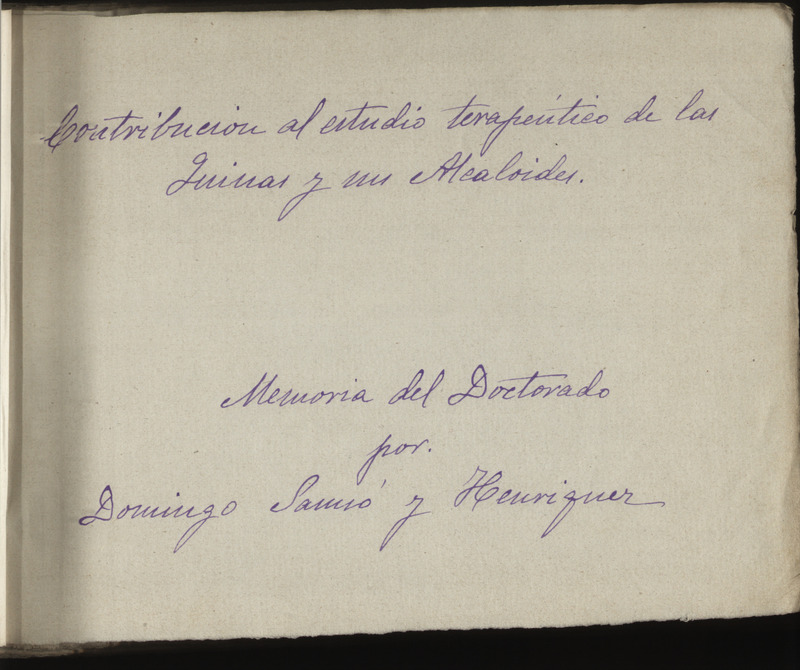 Contribucion al estudio terapéutico de las
Quinas y sus Alcaloides.
Memoria del Doctorado
por.
Domingo y Henriquez